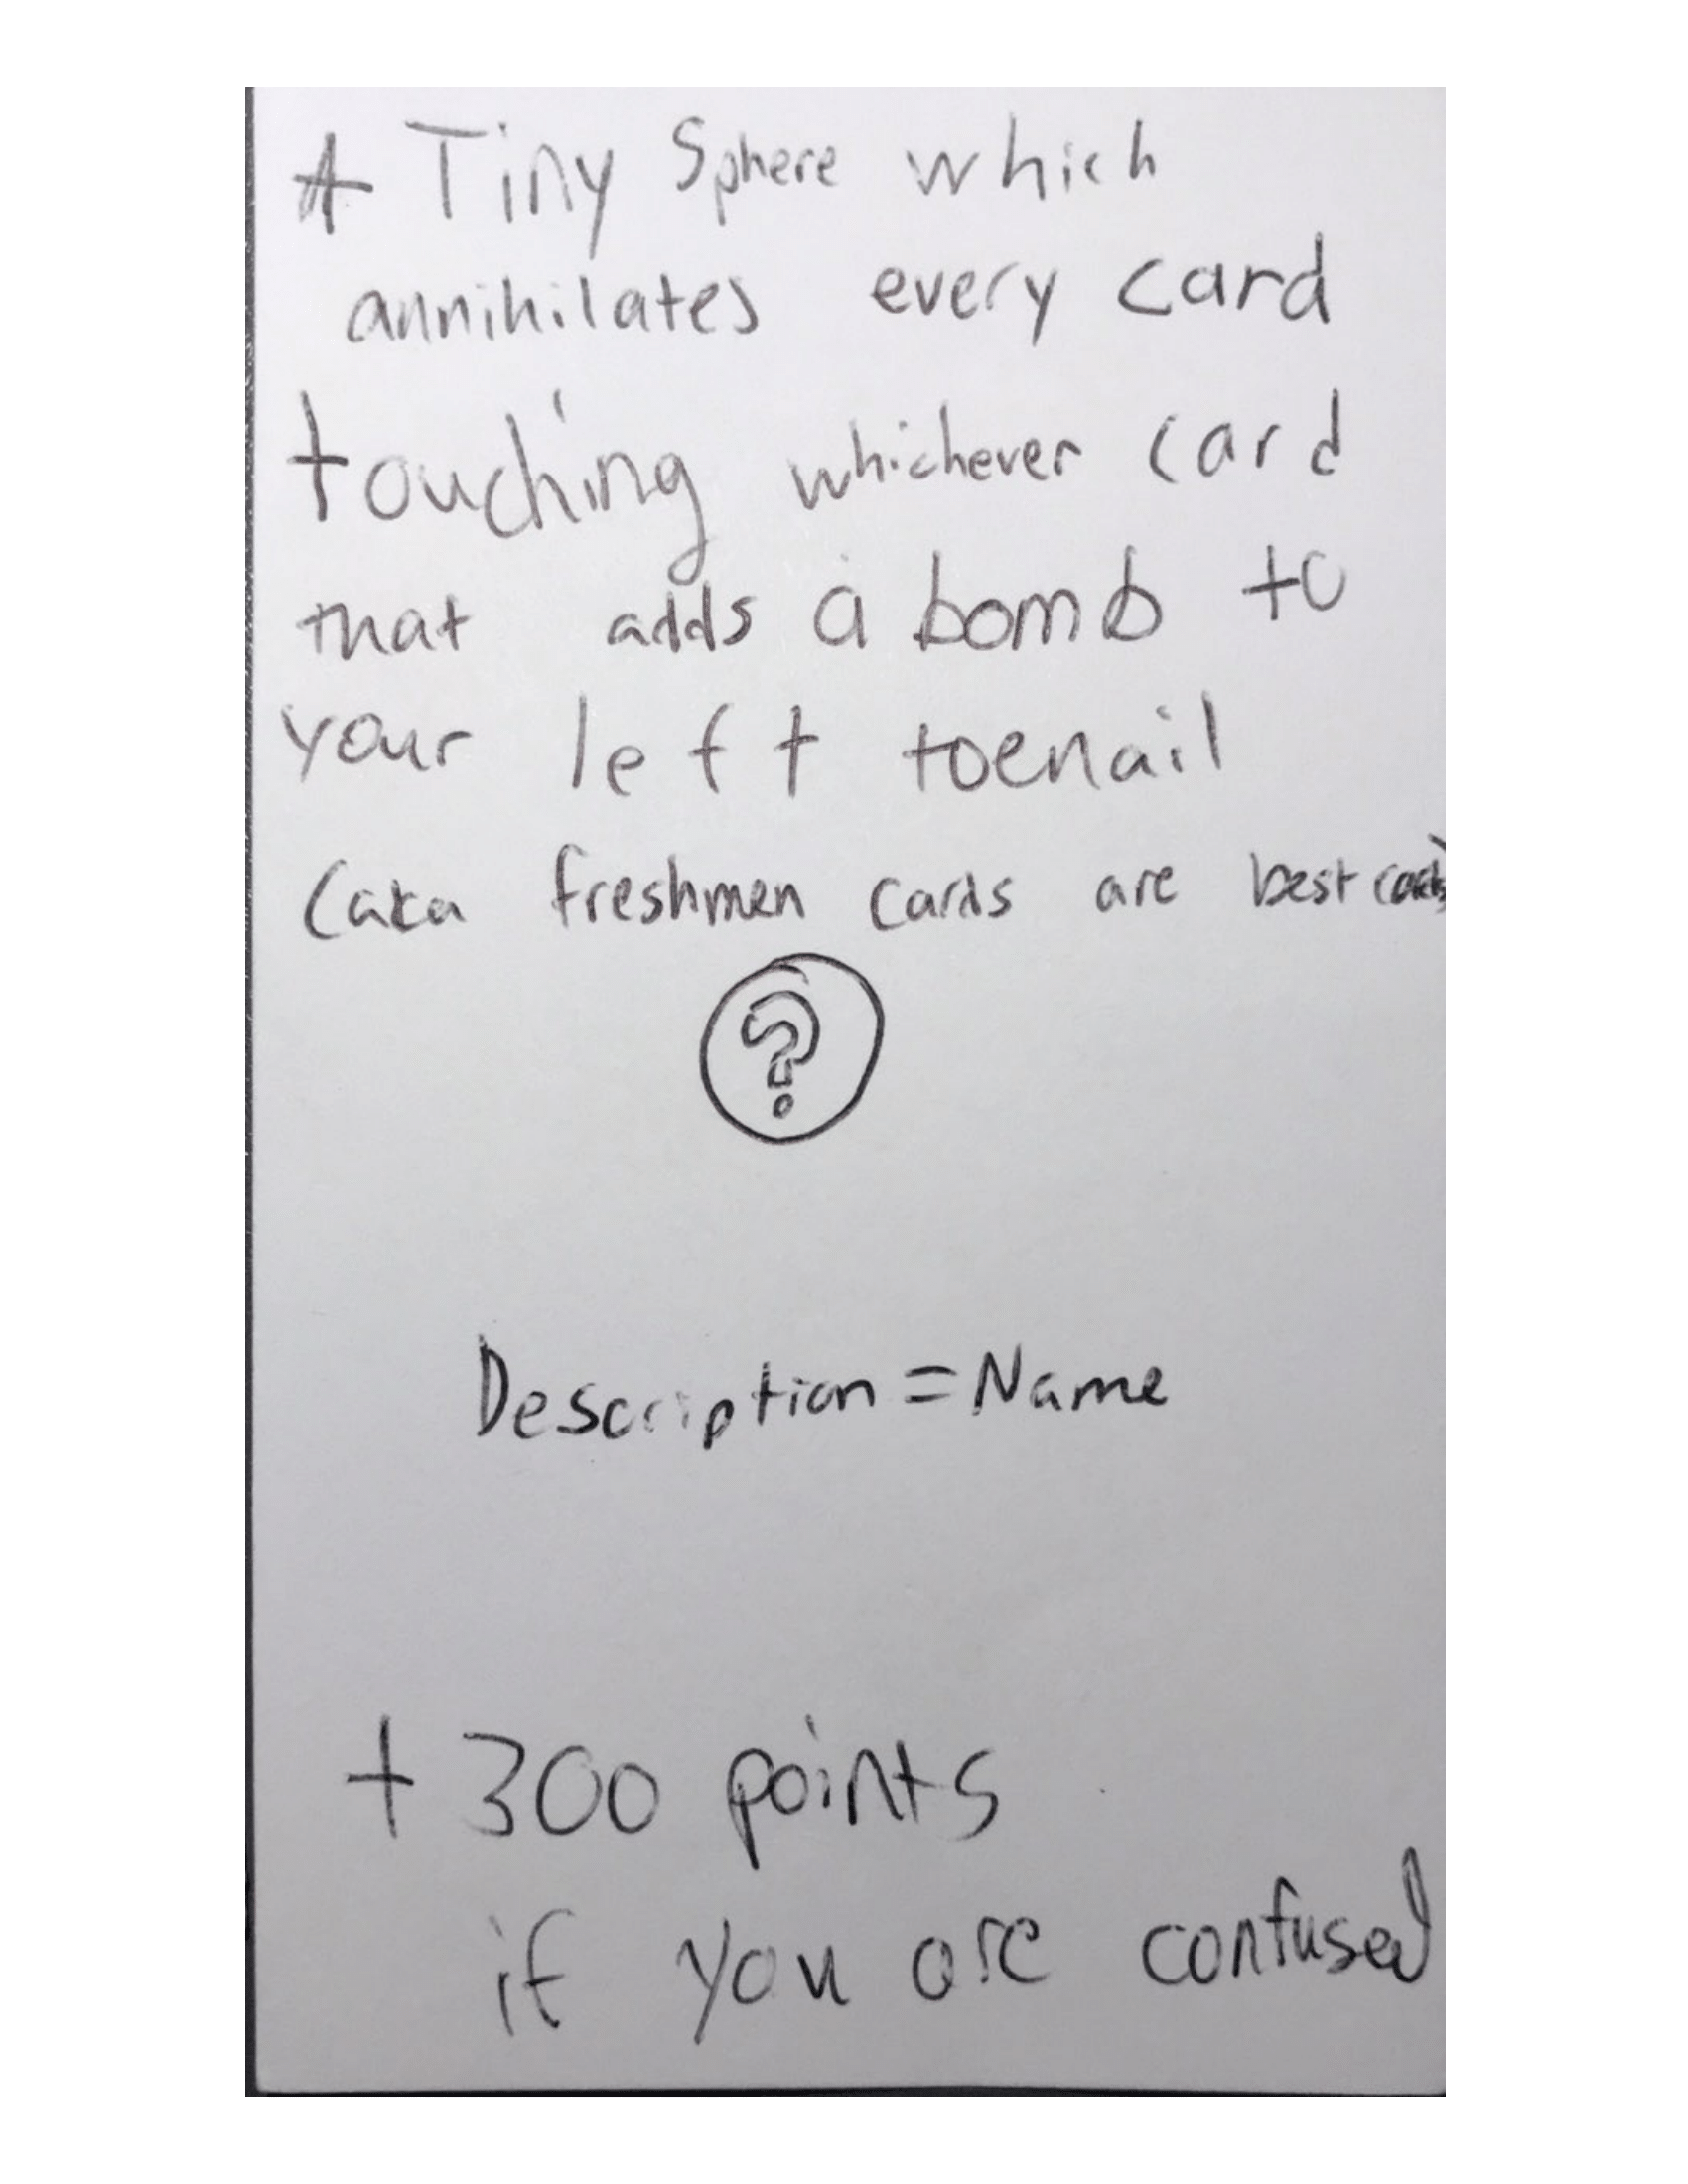 A Tiny Sphere which
annihilates every card
touching whichever card
that adds a bomb to
your left toenail
(aka freshmen cards are best cards)
?
Description = Name
+300 points
if you are confused